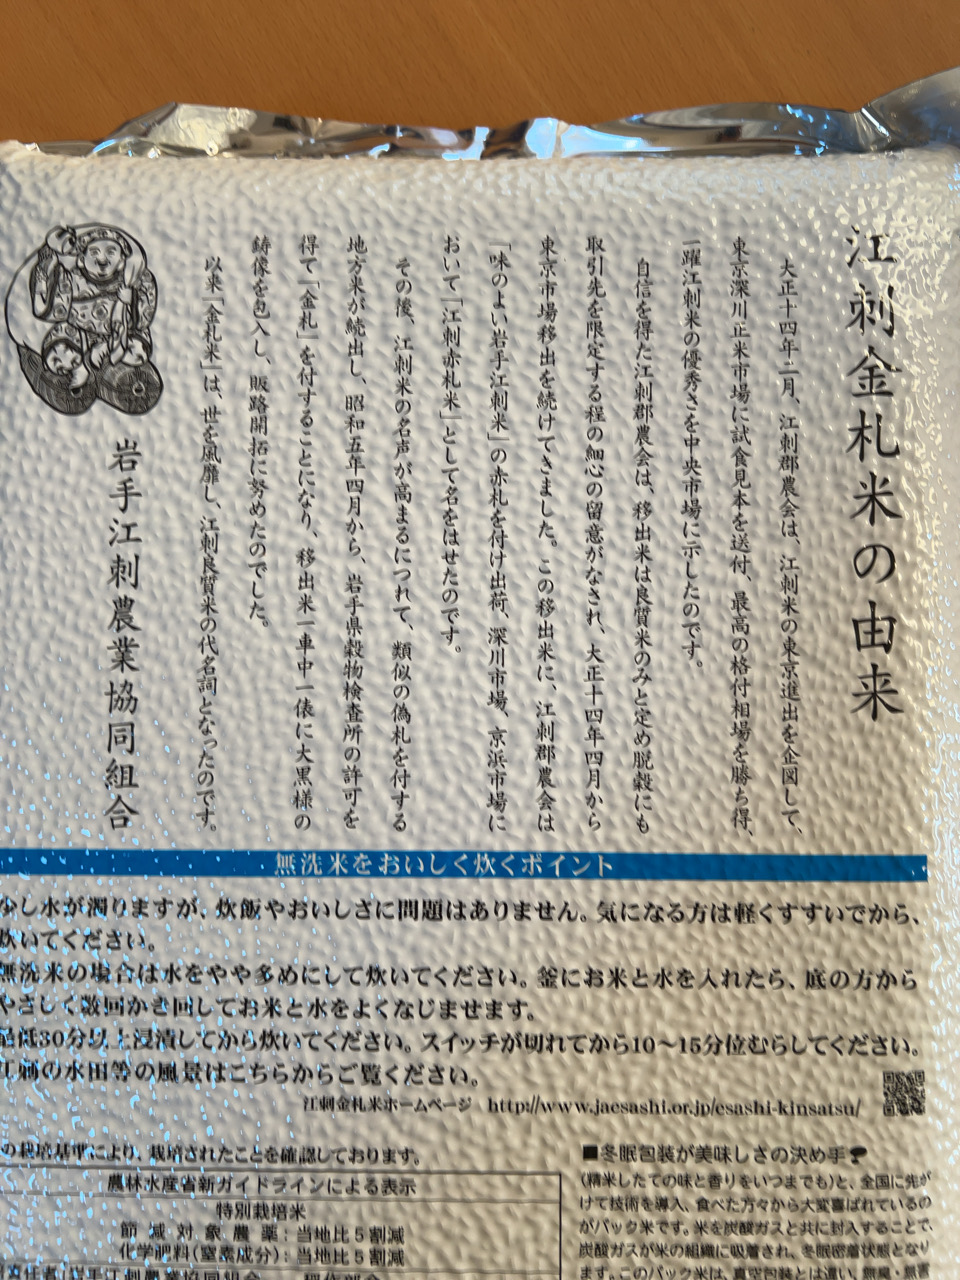 江刺金札米の由来
大正十四年二月、江刺郡農会は、江刺米の東京進出を企図して、
東京深川正米市場に試食見本を送付、最高の格付相場を勝ち得、
一躍江刺米の優秀さを中央市場に示したのです。
自信を得た江刺郡農会は、移出米は良質米のみと定め脱穀にも
取引先を限定する程の細心の留意がなされ、大正十四年四月から
東京市場移出を続けてきました。この移出米に、江刺郡農会は
「味のよい岩手江刺米」の赤札を付け出荷、深川市場、京浜市場に
おいて「江刺赤札米」として名をはせたのです。
その後、江刺米の名声が高まるにつれて、類似の偽札を付する
地方米が続出し、昭和五年四月から、岩手県穀物検査所の許可を
得て「金札」を付することになり、移出米一車中一俵に大黒様の
鋳像を包入し、販路開拓に努めたのでした。
以来「金札米」は、世を風靡し、江刺良質米の代名詞となったのです。
岩手江刺農業協同組合
無洗米をおいしく炊くポイント
少し水が濁りますが、炊飯やおいしさに問題はありません。気になる方は軽くすすいでから、
炊いてください。
無洗米の場合は水をやや多めにして炊いてください。釜にお米と水を入れたら、底の方から
やさしく数回かき回してお米と水をよくなじませます。
最低30分以上浸漬してから炊いてください。スイッチが切れてから10〜15分位むらしてください。
江刺の水田等の風景はこちらからご覧ください。
江刺金札米ホームページ http://www.jaesashi.or.jp/esashi-kinsatsu/
の栽培基準により、栽培されたことを確認しております。
農林水産省新ガイドラインによる表示
特別栽培米
節減対象農薬：当地比５割減
化学肥料(窒素成分)：当地比５割減
■冬眠包装が美味しさの決め手❢
(精米したての味と香りをいつまでも)と、全国に先が
けて技術を導入、食べた方々から大変喜ばれているの
がパック米です。米を炭酸ガスと共に封入することで、
炭酸ガスが米の組織に吸着され、冬眠密着状態となり
ます。このパック米は、真空包装とは違い、無臭・無害